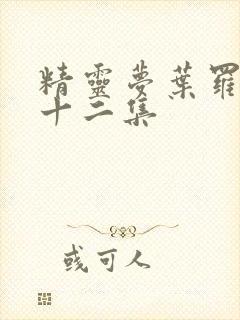 精靈夢葉羅
十二集
彧可人